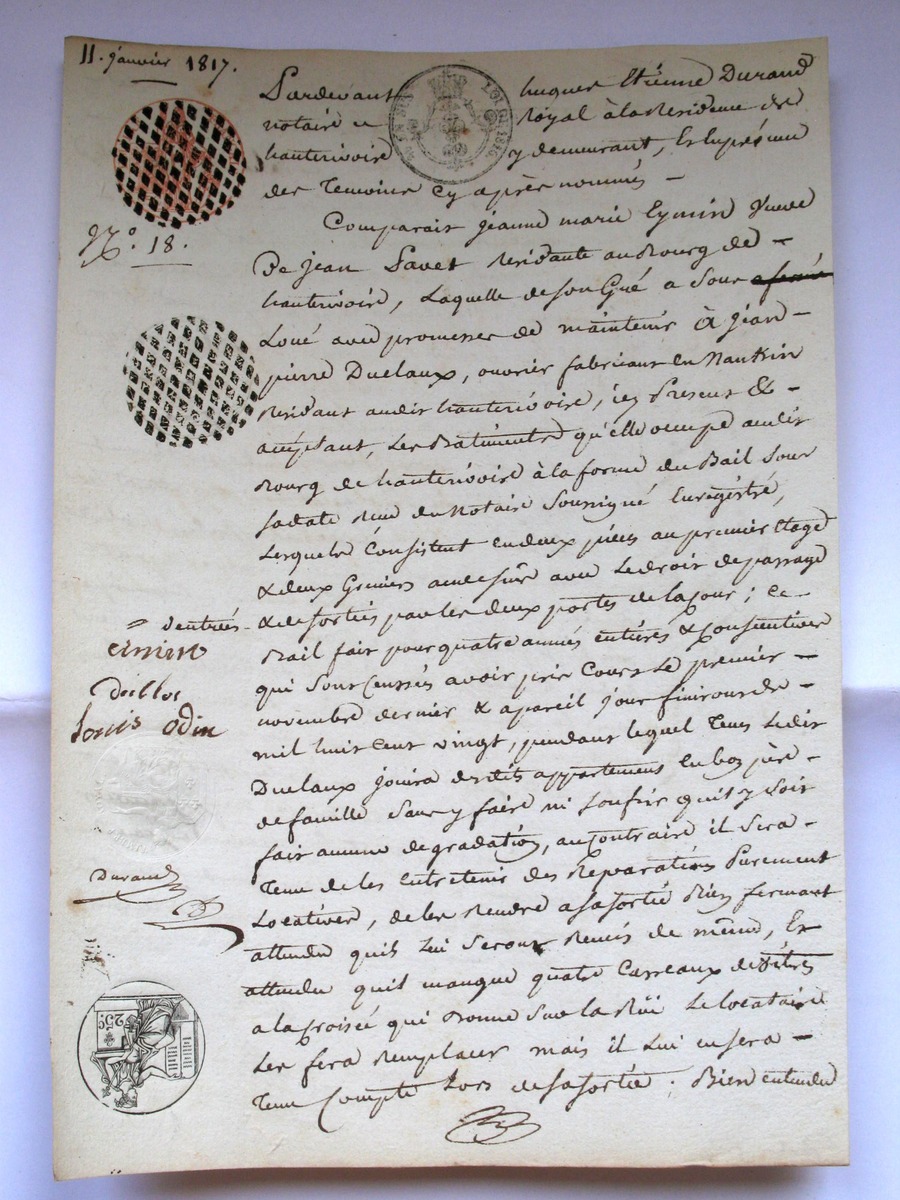 11. janvier 1817.
Pardevant hugues Etienne Durand
notaire Royal à la Residence de
hauterivoire y demeurant, Et la présence
des Temoins Cy après nommés –
N.º 18.
Comparait jeanne marie Eymin Veuve
De jean Pavet Residante au Bourg de –
hauterivoire, Laquelle de son Gré a Sous
Loué avec promesse de maintenir à jean –
pierre Duclaux, ouvrier fabricant en Nankin
Residant audit hauterivoire, icy Present & –
acceptant, Les Batiments qu'elle occupe audit
Bourg de hauterivoire à la forme du Bail Sous
sa date Reçu du Notaire Soussigné Enregistré,
Lesquels Consistent en deux pièces au premier Etage
& deux Greniers avec le droit de passage
d'entrées
& de sorties par les deux portes de la Cour ; Ce –
Bail fait pour quatre années entières & Consécutives
qui Sont Censées avoir pris Cours Le premier –
novembre dernier & a pareil jour finiront de –
mil huit Cent vingt, pendant lequel Tems Ledit
Duclaux jouira desdits appartement en bon père –
de famille Sans y faire ni soufrir qu'il y Soit
fait aucune degradation, au Contraire il Sera –
Tenu de les Entretenir des Reparations Purement
Locatives, de les Rendre a sa sortie Bien fermant
attendu qu'ils Lui Seront Remis de même, Et
attendu qu'il manque quatre Carreaux de Vitres
a la Croisée qui Donne Sur la Rüe Le locataire
Les fera Remplacer mais il Lui en sera –
Tenu Compte Lors de sa sortie ; Bien entendu
Louis odin
Durand
25c